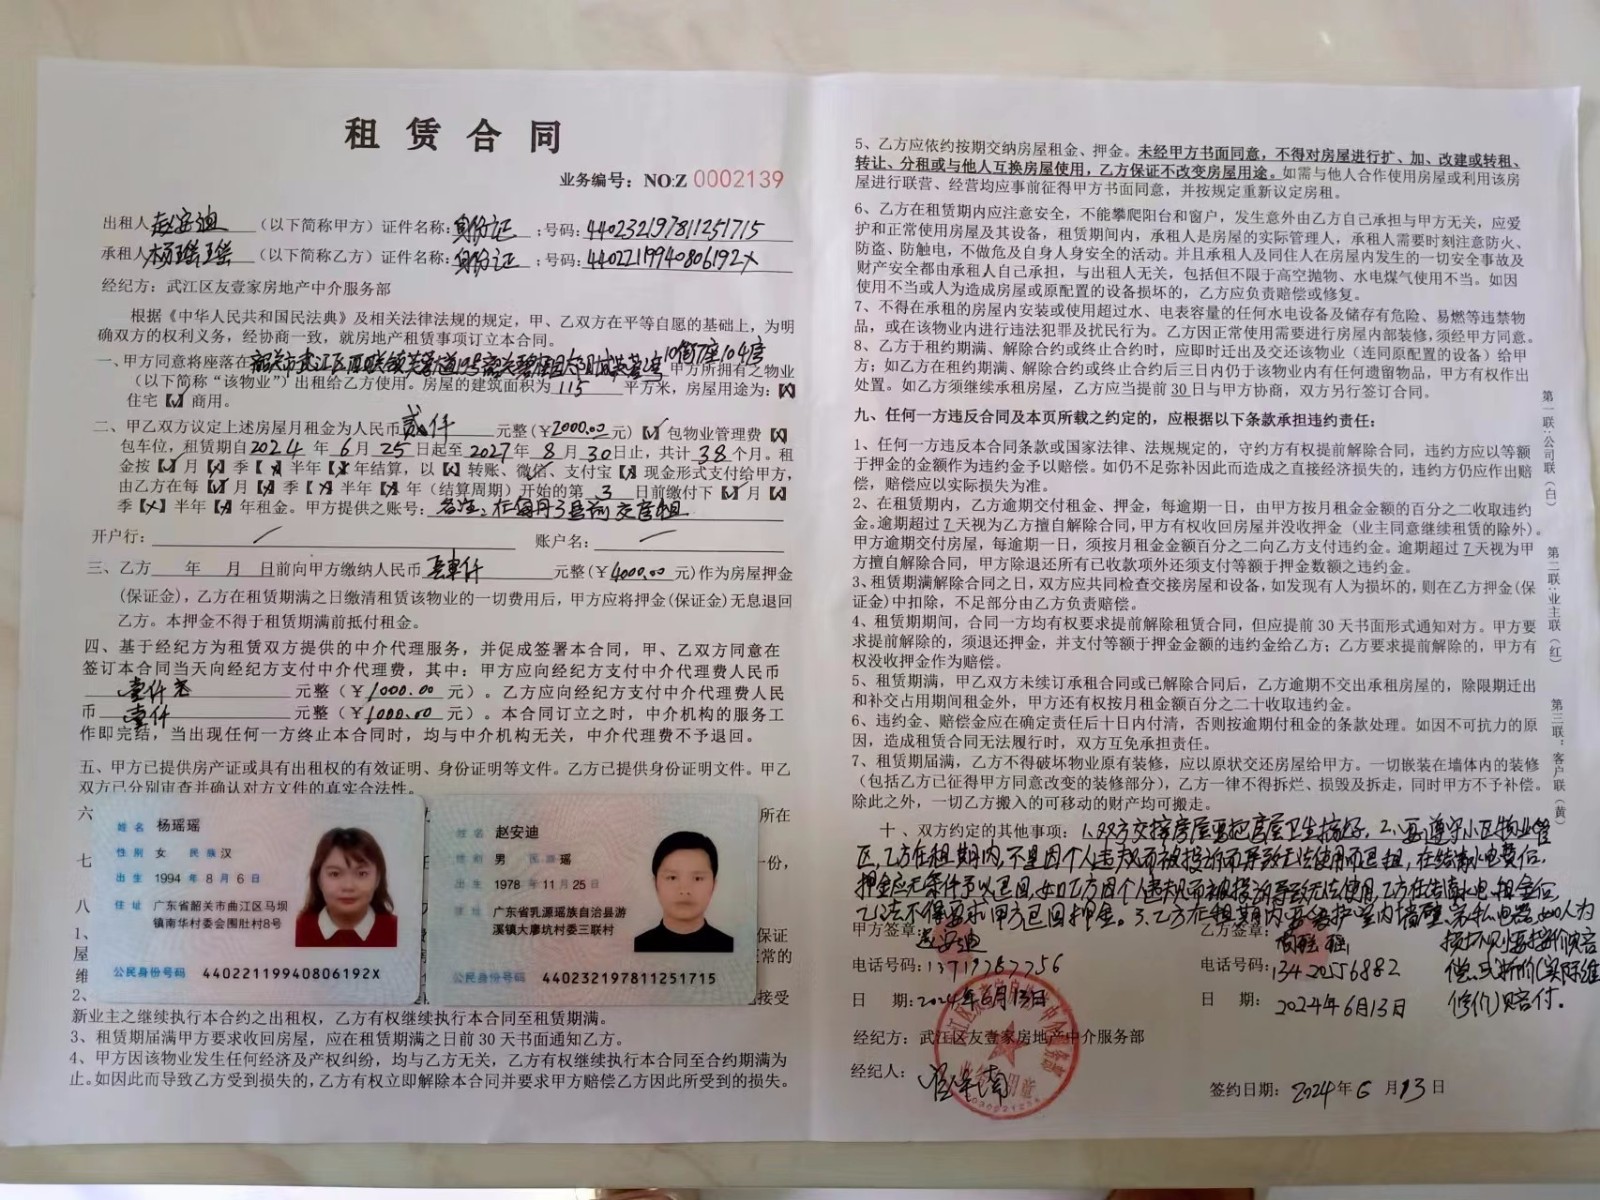 租赁合同
业务编号：NO:Z 0002139
出租人赵安迪（以下简称甲方）证件名称：身份证；号码：440232197811251715
承租人杨瑶瑶（以下简称乙方）证件名称：身份证；号码：44022119940806192X
经纪方：武江区友壹家房地产中介服务部
根据《中华人民共和国民法典》及相关法律法规的规定，甲、乙双方在平等自愿的基础上，为明
确双方的权利义务，经协商一致，就房地产租赁事项订立本合同。
一、甲方同意将座落在韶关市武江区西联镇芙蓉大道19号韶关碧桂园太阳城芙蓉湾10街7座104房 甲方所拥有之物业
（以下简称“该物业”）出租给乙方使用。房屋的建筑面积为 115 平方米，房屋用途为：【×】
住宅【√】商用。
二、甲乙双方议定上述房屋月租金为人民币贰仟元整（￥2000.00元）【√】包物业管理费【×】
包车位，租赁期自2024年6月25日起至2027年8月30日止，共计38个月。租
金按【√】月【×】季【×】半年【×】年结算，以【√】转账、微信、支付宝【×】现金形式支付给甲方，
由乙方在每【√】月【×】季【×】半年【×】年（结算周期）开始的第 3 日前缴付下【√】月【×】
季【×】半年【×】年租金。甲方提供之账号：备注：在每月3号前交房租
开户行： / 账户名： /
三、乙方 年 月 日前向甲方缴纳人民币肆仟元整（￥4000.00元）作为房屋押金
(保证金)，乙方在租赁期满之日缴清租赁该物业的一切费用后，甲方应将押金(保证金)无息退回
乙方。本押金不得于租赁期满前抵付租金。
四、基于经纪方为租赁双方提供的中介代理服务，并促成签署本合同，甲、乙双方同意在
签订本合同当天向经纪方支付中介代理费，其中：甲方应向经纪方支付中介代理费人民币
壹仟元 元整（￥1000.00元）。乙方应向经纪方支付中介代理费人民
币 壹仟 元整（￥1000.00元）。本合同订立之时，中介机构的服务工
作即完结，当出现任何一方终止本合同时，均与中介机构无关，中介代理费不予退回。
五、甲方已提供房产证或具有出租权的有效证明、身份证明等文件。乙方已提供身份证明文件。甲乙
双方已分别审查并确认对方文件的真实合法性。
六 所在
七 份，
八
1、 保证
屋 正常的
维
2、 接受
姓名 杨瑶瑶
性别 女 民族 汉
出生 1994年8月6日
住址 广东省韶关市曲江区马坝
镇南华村委会围肚村8号
公民身份号码 44022119940806192X
姓名 赵安迪
性别 男 民族 瑶
出生 1978年11月25日
住址 广东省乳源瑶族自治县游
溪镇大廖坑村委三联村
公民身份号码 440232197811251715
新业主之继续执行本合约之出租权，乙方有权继续执行本合同至租赁期满。
3、租赁期届满甲方要求收回房屋，应在租赁期满之日前30天书面通知乙方。
4、甲方因该物业发生任何经济及产权纠纷，均与乙方无关，乙方有权继续执行本合同至合约期满为
止。如因此而导致乙方受到损失的，乙方有权立即解除本合同并要求甲方赔偿乙方因此所受到的损失。
5、乙方应依约按期交纳房屋租金、押金。未经甲方书面同意，不得对房屋进行扩、加、改建或转租、
转让、分租或与他人互换房屋使用，乙方保证不改变房屋用途。如需与他人合作使用房屋或利用该房
屋进行联营、经营均应事前征得甲方书面同意，并按规定重新议定房租。
6、乙方在租赁期内应注意安全，不能攀爬阳台和窗户，发生意外由乙方自己承担与甲方无关，应爱
护和正常使用房屋及其设备，租赁期间内，承租人是房屋的实际管理人，承租人需要时刻注意防火、
防盗、防触电，不做危及自身人身安全的活动。并且承租人及同住人在房屋内发生的一切安全事故及
财产安全都由承租人自己承担，与出租人无关，包括但不限于高空抛物、水电煤气使用不当。如因
使用不当或人为造成房屋或原配置的设备损坏的，乙方应负责赔偿或修复。
7、不得在承租的房屋内安装或使用超过水、电表容量的任何水电设备及储存有危险、易燃等违禁物
品，或在该物业内进行违法犯罪及扰民行为。乙方因正常使用需要进行房屋内部装修，须经甲方同意。
8、乙方于租约期满、解除合约或终止合约时，应即时迁出及交还该物业（连同原配置的设备）给甲
方；如乙方在租约期满、解除合约或终止合约后三日内仍于该物业内有任何遗留物品，甲方有权作出
处置。如乙方须继续承租房屋，乙方应当提前30日与甲方协商，双方另行签订合同。
九、任何一方违反合同及本页所载之约定的，应根据以下条款承担违约责任：
1、任何一方违反本合同条款或国家法律、法规规定的，守约方有权提前解除合同，违约方应以等额
于押金的金额作为违约金予以赔偿。如仍不足弥补因此而造成之直接经济损失的，违约方仍应作出赔
偿，赔偿应以实际损失为准。
2、在租赁期内，乙方逾期交付租金、押金，每逾期一日，由甲方按月租金金额的百分之二收取违约
金。逾期超过7天视为乙方擅自解除合同，甲方有权收回房屋并没收押金（业主同意继续租赁的除外）。
甲方逾期交付房屋，每逾期一日，须按月租金金额百分之二向乙方支付违约金。逾期超过7天视为甲
方擅自解除合同，甲方除退还所有已收款项外还须支付等额于押金数额之违约金。
3、租赁期满解除合同之日，双方应共同检查交接房屋和设备，如发现有人为损坏的，则在乙方押金(保
证金)中扣除，不足部分由乙方负责赔偿。
4、租赁期期间，合同一方均有权要求提前解除租赁合同，但应提前30天书面形式通知对方。甲方要
求提前解除的，须退还押金，并支付等额于押金金额的违约金给乙方；乙方要求提前解除的，甲方有
权没收押金作为赔偿。
5、租赁期满，甲乙双方未续订承租合同或已解除合同后，乙方逾期不交出承租房屋的，除限期迁出
和补交占用期间租金外，甲方还有权按月租金额百分之二十收取违约金。
6、违约金、赔偿金应在确定责任后十日内付清，否则按逾期付租金的条款处理。如因不可抗力的原
因，造成租赁合同无法履行时，双方互免承担责任。
7、租赁期届满，乙方不得破坏物业原有装修，应以原状交还房屋给甲方。一切嵌装在墙体内的装修
（包括乙方已征得甲方同意改变的装修部分），乙方一律不得拆烂、损毁及拆走，同时甲方不予补偿。
除此之外，一切乙方搬入的可移动的财产均可搬走。
十、双方约定的其他事项：1、双方交接房屋要把房屋卫生搞好，2、要遵守小区物业管
区，乙方在租期内，不是因个人违规而被投诉而导致无法使用而退租，在结清水电费后，
押金应无条件予以退回，如乙方因个人违规而被投诉导致无法使用，乙方在结清水电、租金后
乙方不得要求甲方退回押金。3、乙方在租期内要爱护室内墙壁、家私电器，如人为
损坏则要按价赔
偿，或折价(实际维
修价)赔付。
甲方签章：赵安迪 乙方签章：
电话号码：13719787756 电话号码：13420556882
日 期：2024年6月13日 日 期：2024年6月13日
经纪方：武江区友壹家房地产中介服务部
经纪人：
签约日期：2024年6月13日
第一联：公司联（白）
第二联：业主联（红）
第三联：客户联（黄）